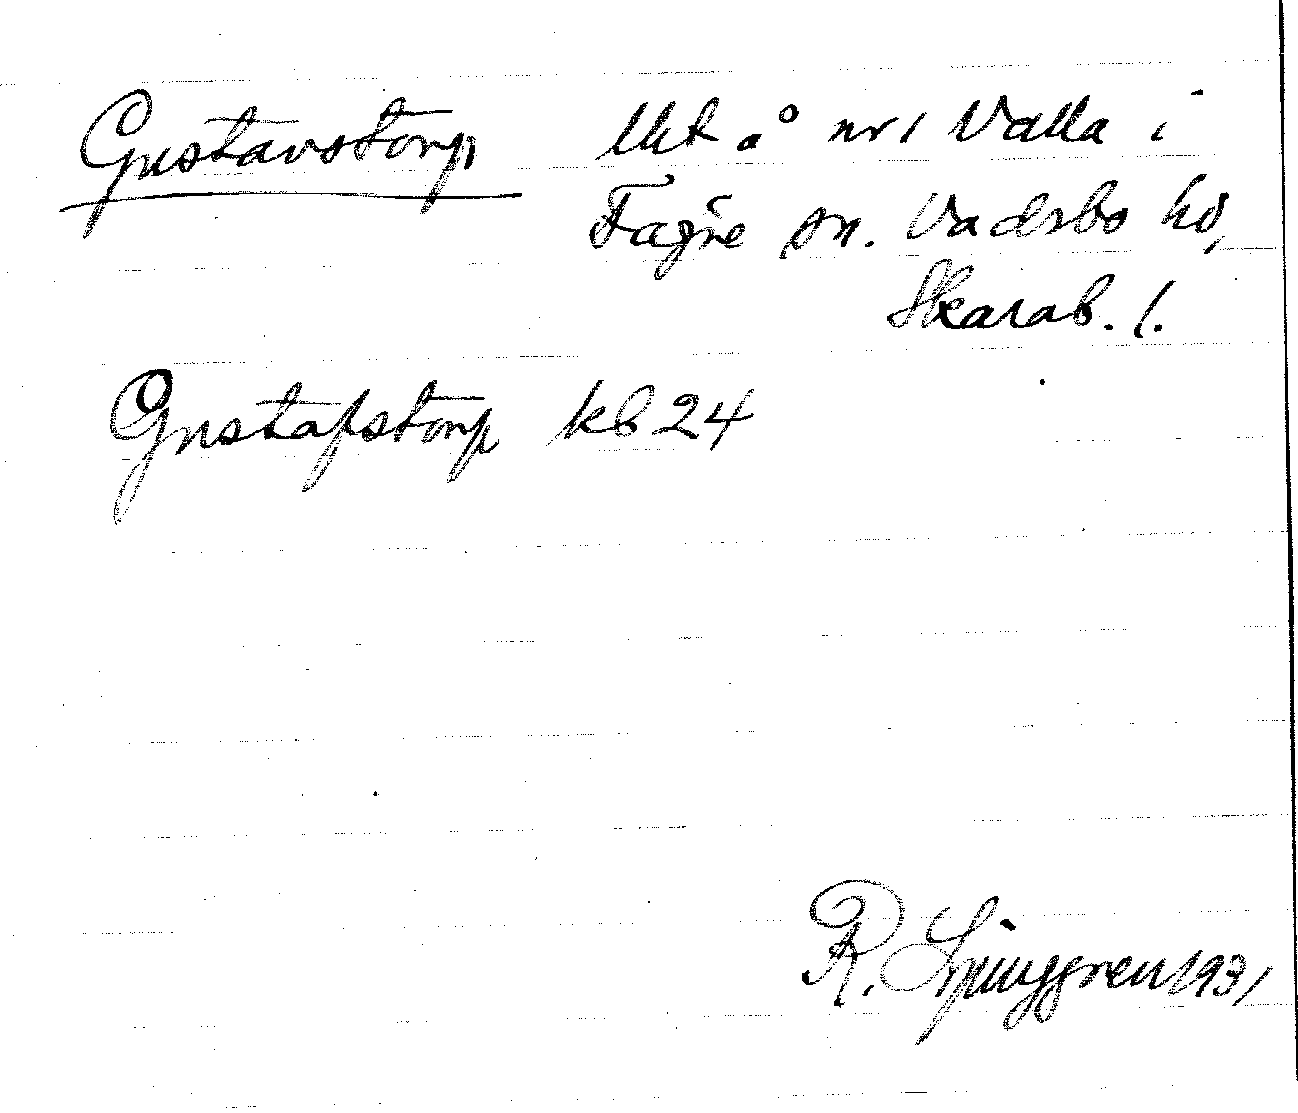 Gustavstorp Utt å nr 1 Valla i
Fägre sn. Vadsbo hd,
Skarab. l.
Gustafstorp kb 24
R. Ljunggren 1931